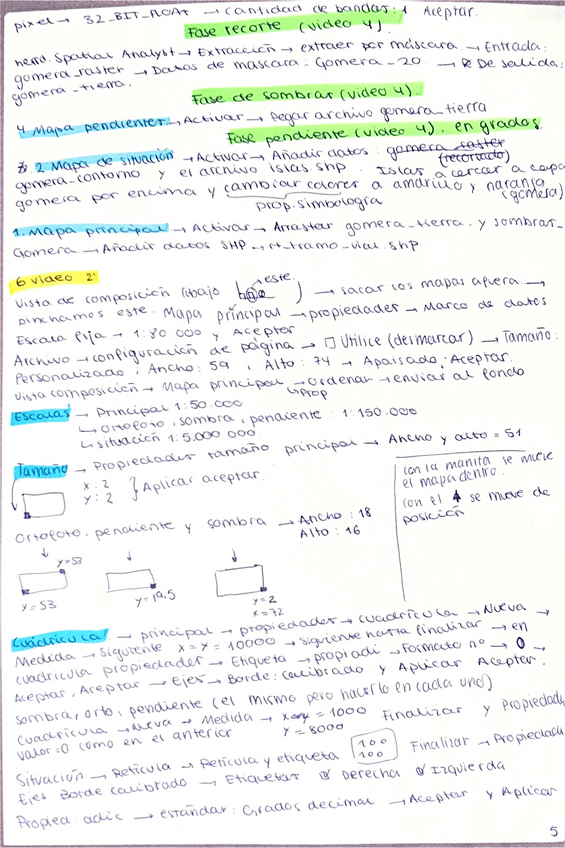 pixel → 32_BIT_FLOAT → Cantidad de bandas: 1 Aceptar.
Fase recorte (video 4).
herr. Spatial Analyst → Extracción → extraer por máscara. → Entrada:
gomera_raster → Datos de máscara: Gomera_20. → De salida:
gomera_tierra.
Fase de sombras (video 4).
4 Mapa pendientes → Activar → Pegar archivo gomera_tierra
Fase pendiente (video 4). en grados
2 Mapa de situación → Activar → Añadir datos: gomera raster (recortado)
gomera_contorno y el archivo Islas.shp. Islas acercar a capa
gomera por encima y cambiar colores a amarillo y naranja (gomera)
prop. simbología
1. Mapa principal → Activar → Arrastrar gomera_tierra. y sombras_
Gomera → Añadir datos SHP → rt_tramo_vial.shp
6 video 2'
Vista de composición (abajo este) → sacar los mapas afuera →
Pinchamos este. Mapa principal → propiedades → Marco de datos
Escala fija → 1:80 000 y Aceptar
Archivo → configuración de página → □ Utilice (desmarcar) → Tamaño:
Personalizado, Ancho: 59, Alto: 74 → Apaisado: Aceptar.
Vista composición → Mapa principal → Ordenar → enviar al fondo
↳ Prop
Escalas → Principal 1:50.000
↳ Ortofoto, sombra, pendiente: 1:150.000
↳ situación 1:5.000 000.
Tamaño → Propiedades tamaño principal → Ancho y alto = 51
x: 2
y: 2 } Aplicar aceptar.
con la manita se mueve
el mapa dentro.
con el se mueve de
posición
Ortofoto, pendiente y sombra → Ancho: 18
Alto: 16
y=53
x=53
y=19,5
y=2
x=72
Cuadrícula → principal → propiedades → cuadrícula → Nueva →
Medida → Siguiente x=y=10000 → siguiente hasta finalizar → en
cuadrícula propiedades → Etiqueta → propiadi → Formato nº → 0 →
Aceptar, Aceptar → Ejes → Borde: calibrado y Aplicar Aceptar.
sombra, orto, pendiente (el mismo pero hacerlo en cada uno)
Cuadrícula → Nueva → Medida → x = 1000 Finalizar y Propiedades
valor=0 como en el anterior y=8000
Situación → Retícula → Retícula y etiqueta 100 100 Finalizar → Propiedad
Ejes Borde calibrado → Etiquetas ☑ Derecha ☑ Izquierda
Propied adic → estándar: Grados decimal → Aceptar y Aplicar
5